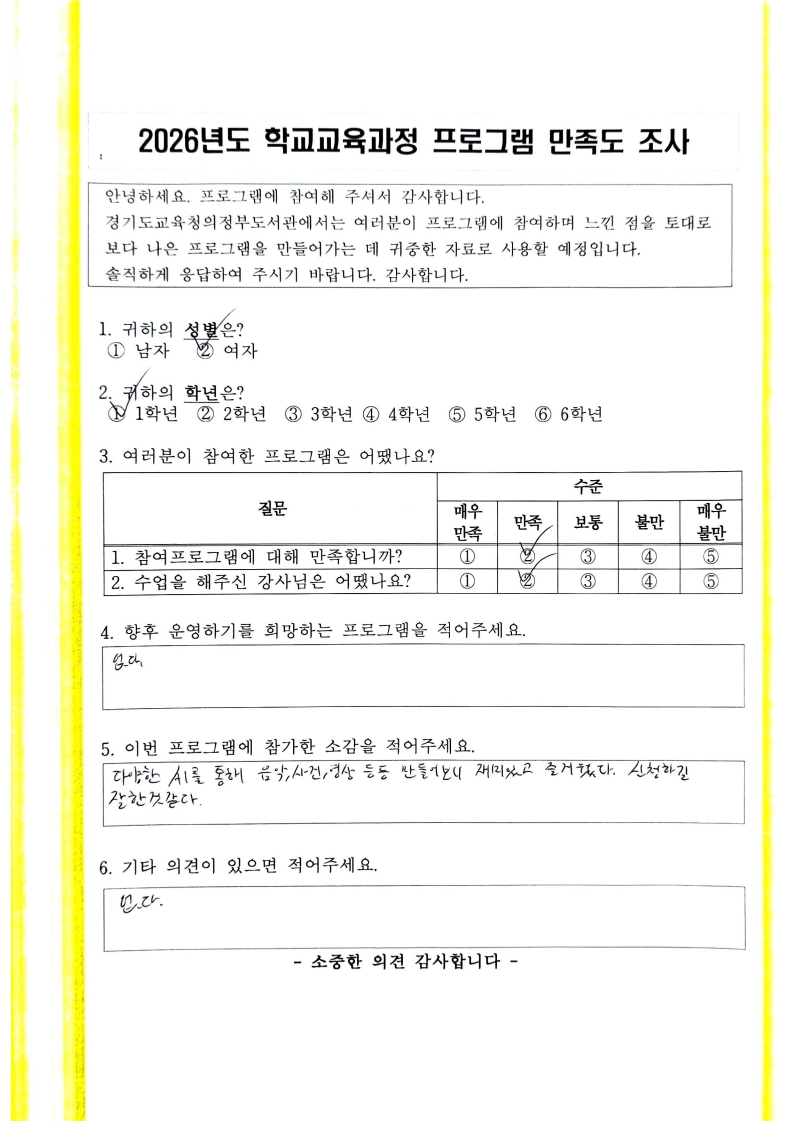 2026년도 학교교육과정 프로그램 만족도 조사
안녕하세요. 프로그램에 참여해 주셔서 감사합니다.
경기도교육청의정부도서관에서는 여러분이 프로그램에 참여하며 느낀 점을 토대로
보다 나은 프로그램을 만들어가는 데 귀중한 자료로 사용할 예정입니다.
솔직하게 응답하여 주시기 바랍니다. 감사합니다.
1. 귀하의 성별은?
① 남자 ② 여자
2. 귀하의 학년은?
① 1학년 ② 2학년 ③ 3학년 ④ 4학년 ⑤ 5학년 ⑥ 6학년
3. 여러분이 참여한 프로그램은 어땠나요?
질문 수준
매우 만족 만족 보통 불만 매우 불만
1. 참여프로그램에 대해 만족합니까? ① ② ③ ④ ⑤
2. 수업을 해주신 강사님은 어땠나요? ① ② ③ ④ ⑤
4. 향후 운영하기를 희망하는 프로그램을 적어주세요.
없다
5. 이번 프로그램에 참가한 소감을 적어주세요.
다양한 AI를 통해 음악,사진,영상 등등 만들어보니 재미있고 즐거웠다. 신청하길
잘한것같다.
6. 기타 의견이 있으면 적어주세요.
없다.
- 소중한 의견 감사합니다 -